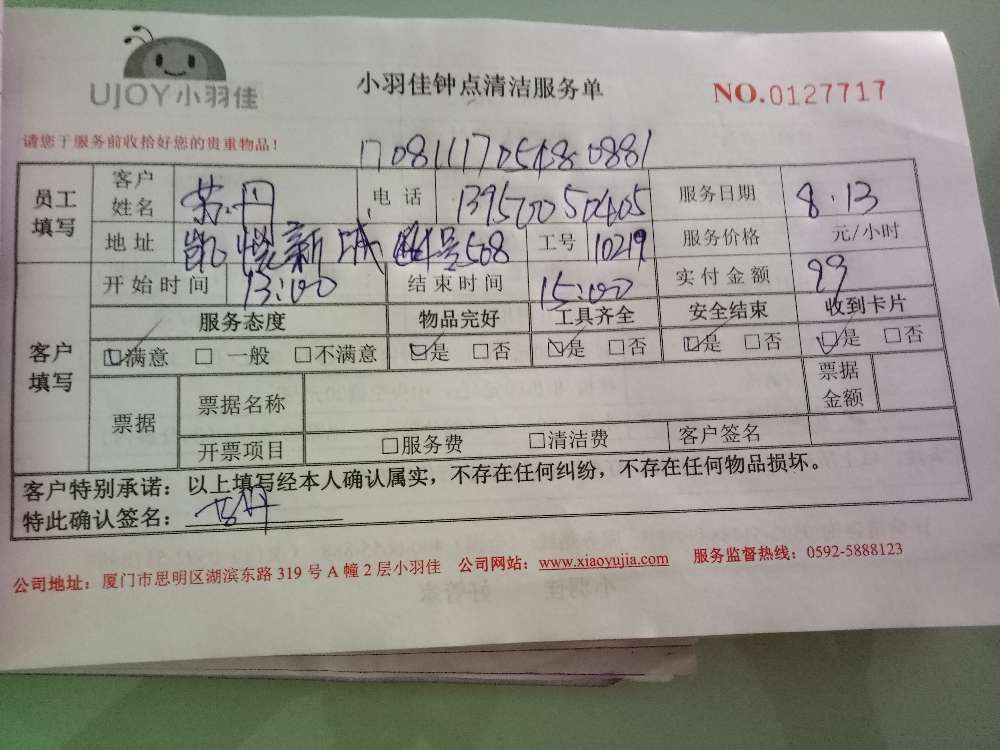 UJOY小羽佳
小羽佳钟点清洁服务单
NO.0127717
请您于服务前收拾好您的贵重物品!
员工填写 客户姓名 苏丹 电话 服务日期 8.13
地址 凯悦新城 508 工号 10219 服务价格 元/小时
客户填写 开始时间 13:00 结束时间 15:00 实付金额 99
服务态度 物品完好 工具齐全 安全结束 收到卡片
☑满意 □一般 □不满意 ☑是 □否 ☑是 □否 ☑是 □否 ☑是 □否
票据 票据名称 票据金额
开票项目 □服务费 □清洁费 客户签名
客户特别承诺:以上填写经本人确认属实,不存在任何纠纷,不存在任何物品损坏。
特此确认签名:
公司地址:厦门市思明区湖滨东路 319 号 A 幢 2 层小羽佳 公司网站:www.xiaoyujia.com 服务监督热线:0592-5888123